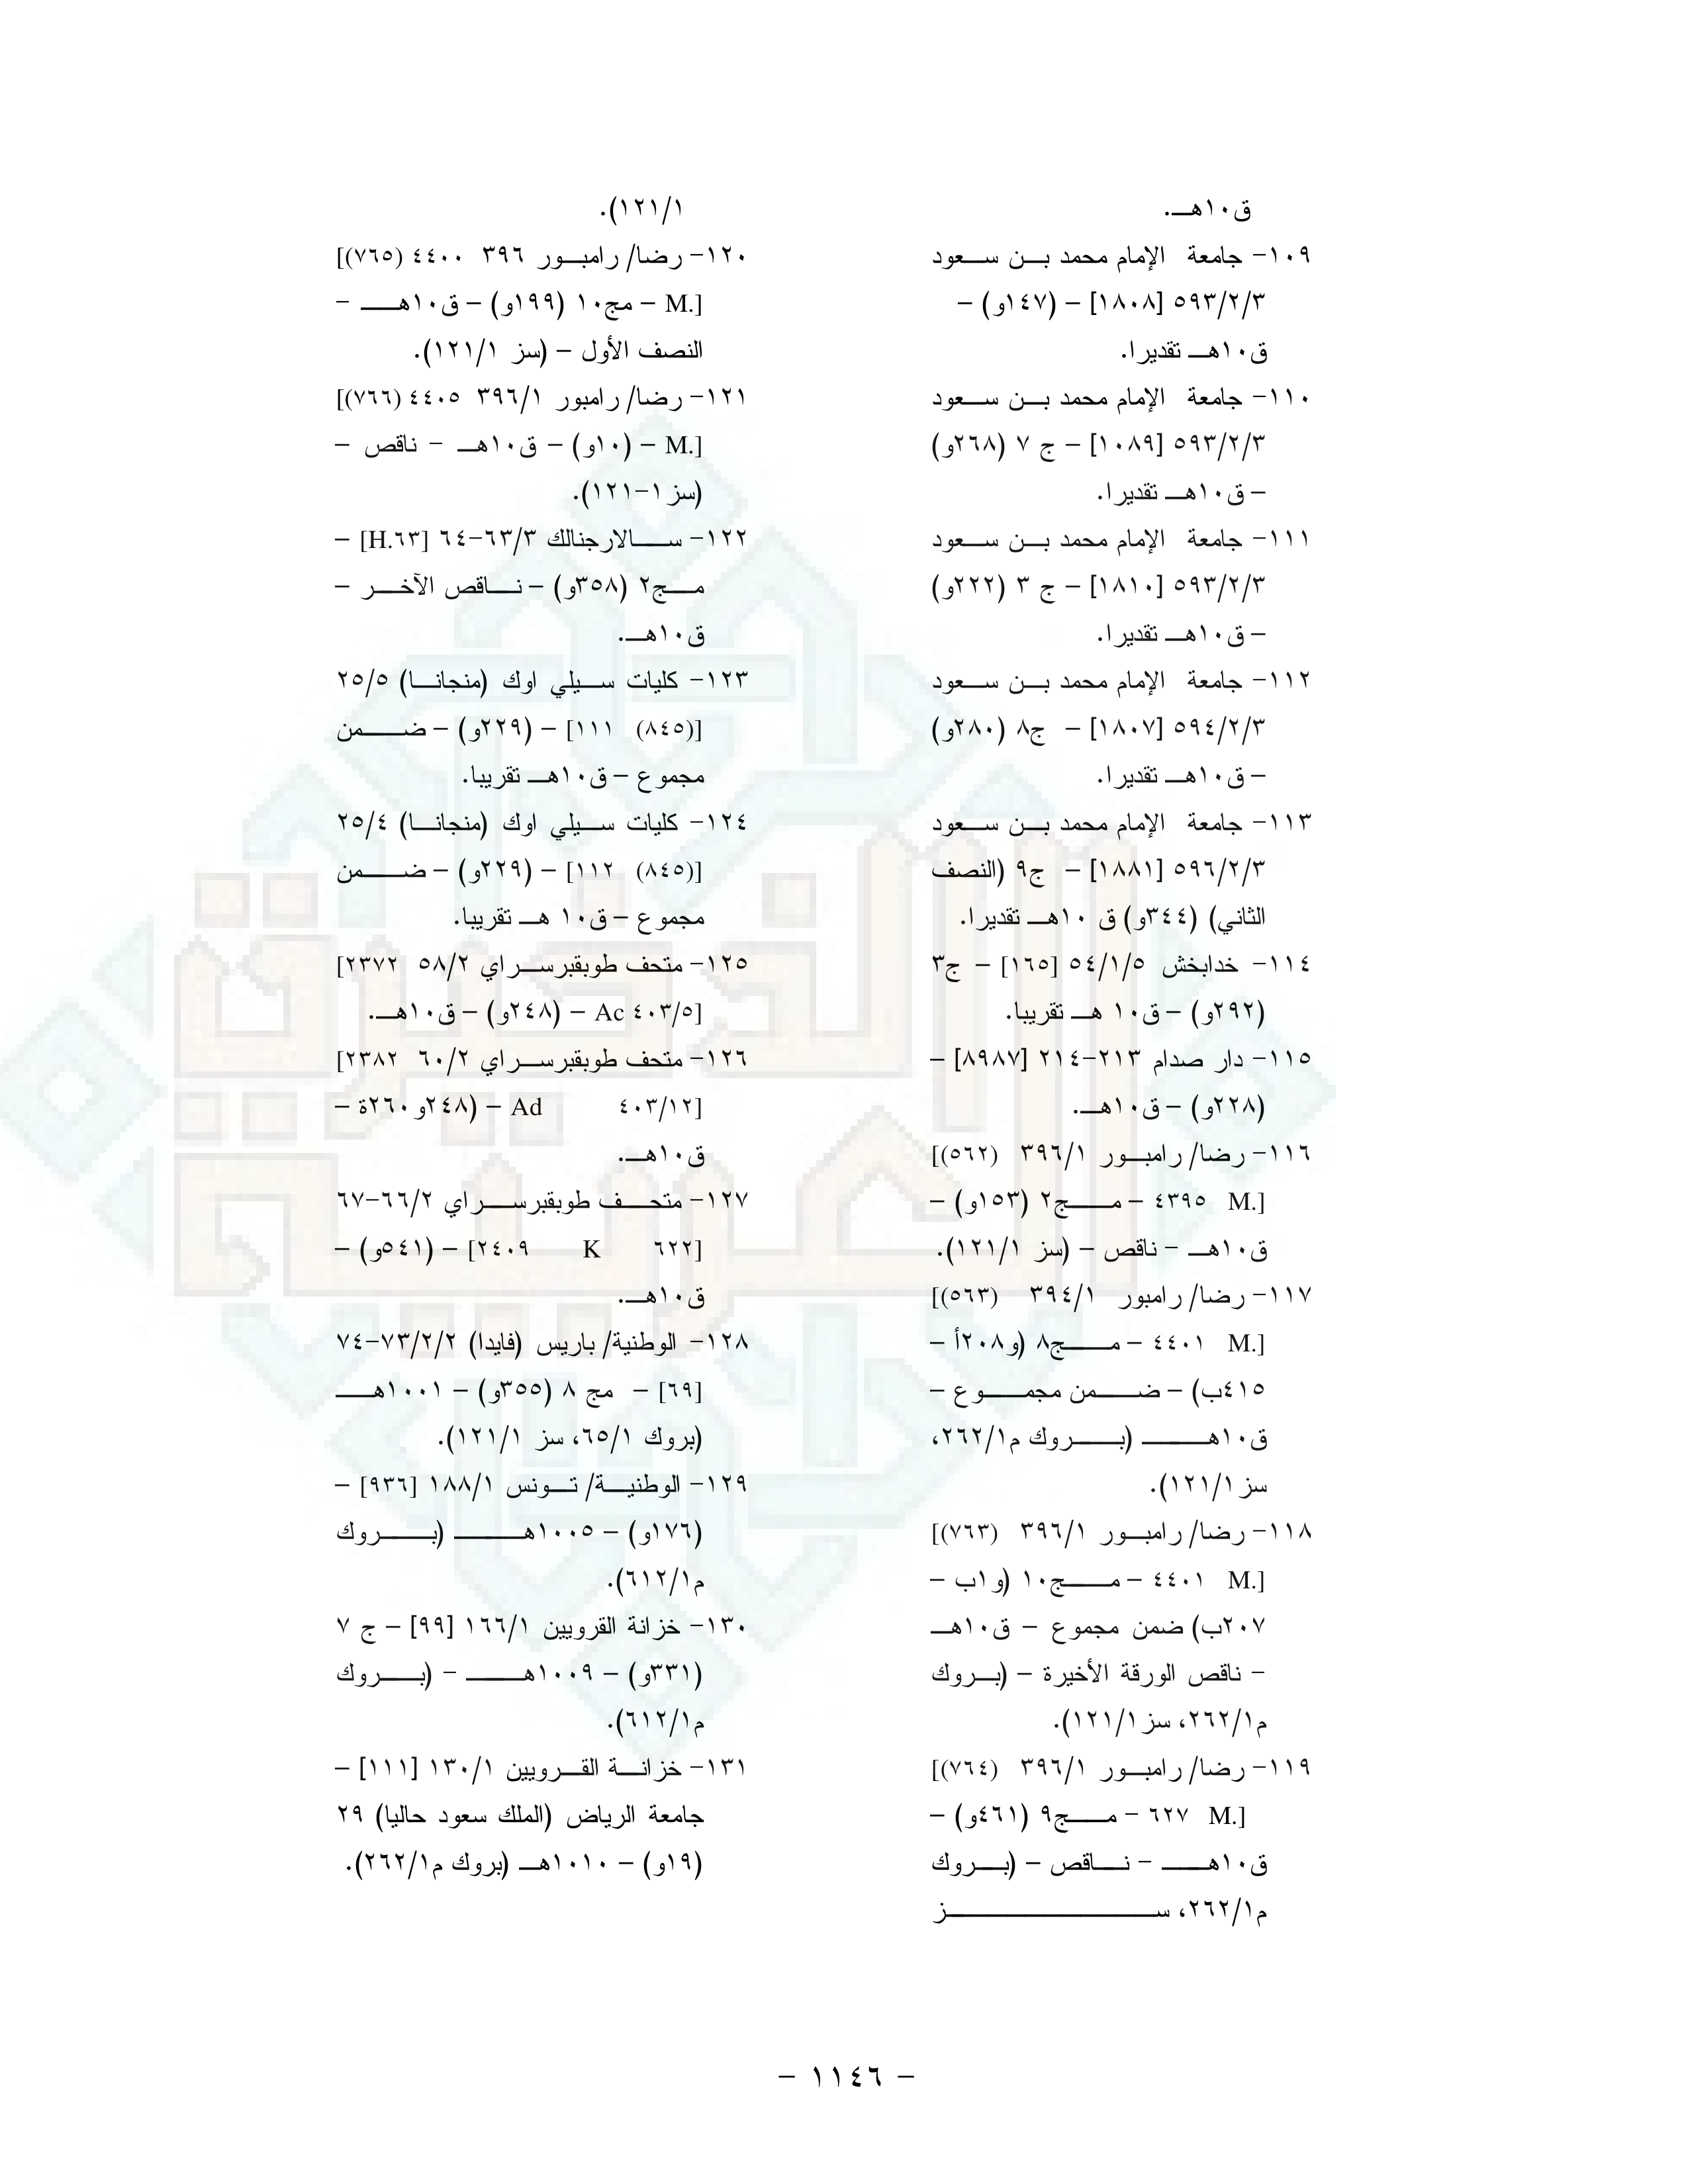 ق١٠هـ.
١٠٩- جامعة الإمام محمد بن سعود
٥٩٣/٢/٣ [١٨٠٨] – (١٤٧و) –
ق١٠هـ تقديرا.
١١٠- جامعة الإمام محمد بن سعود
٥٩٣/٢/٣ [١٠٨٩] – ج ٧ (٢٦٨و)
– ق١٠هـ تقديرا.
١١١- جامعة الإمام محمد بن سعود
٥٩٣/٢/٣ [١٨١٠] – ج ٣ (٢٢٢و)
– ق١٠هـ تقديرا.
١١٢- جامعة الإمام محمد بن سعود
٥٩٤/٢/٣ [١٨٠٧] – ج٨ (٢٨٠و)
– ق١٠هـ تقديرا.
١١٣- جامعة الإمام محمد بن سعود
٥٩٦/٢/٣ [١٨٨١] – ج٩ (النصف
الثاني) (٣٤٤و) ق ١٠هـ تقديرا.
١١٤- خدابخش ٥٤/١/٥ [١٦٥] – ج٣
(٢٩٢و) – ق١٠ هـ تقريبا.
١١٥- دار صدام ٢١٣-٢١٤ [٨٩٨٧] –
(٢٢٨و) – ق١٠هـ.
١١٦- رضا/ رامبور ٣٩٦/١ (٥٦٢)]
[.M ٤٣٩٥ – مج٢ (١٥٣و) –
ق١٠هـ – ناقص – (سز ١٢١/١).
١١٧- رضا/ رامبور ٣٩٤/١ (٥٦٣)]
[.M ٤٤٠١ – مج٨ (و٢٠٨أ –
٤١٥ب) – ضمن مجموع –
ق١٠هـ (بروك م٢٦٢/١،
سز١٢١/١).
١١٨- رضا/ رامبور ٣٩٦/١ (٧٦٣)]
[.M ٤٤٠١ – مج١٠ (و١ب –
٢٠٧ب) ضمن مجموع – ق١٠هـ
– ناقص الورقة الأخيرة – (بروك
م٢٦٢/١، سز١٢١/١).
١١٩- رضا/ رامبور ٣٩٦/١ (٧٦٤)]
[.M ٦٢٧ – مج٩ (٤٦١و) –
ق١٠هـ – ناقص – (بروك
م٢٦٢/١، سز
١٢١/١).
١٢٠- رضا/ رامبور ٣٩٦ ٤٤٠٠ (٧٦٥)]
[.M – مج١٠ (١٩٩و) – ق١٠هـ –
النصف الأول – (سز ١٢١/١).
١٢١- رضا/ رامبور ٣٩٦/١ ٤٤٠٥ (٧٦٦)]
[.M – (١٠و) – ق١٠هـ – ناقص –
(سز١-١٢١).
١٢٢- سالارجنالك ٦٣/٣-٦٤ [H.٦٣] –
مج٢ (٣٥٨و) – ناقص الآخر –
ق١٠هـ.
١٢٣- كليات سيلي اوك (منجانا) ٢٥/٥
[(٨٤٥) ١١١] – (٢٢٩و) – ضمن
مجموع – ق١٠هـ تقريبا.
١٢٤- كليات سيلي اوك (منجانا) ٢٥/٤
[(٨٤٥) ١١٢] – (٢٢٩و) – ضمن
مجموع – ق١٠ هـ تقريبا.
١٢٥- متحف طوبقبرسراي ٥٨/٢ ٢٣٧٢]
[٤٠٣/٥ Ac – (٢٤٨و) – ق١٠هـ.
١٢٦- متحف طوبقبرسراي ٦٠/٢ ٢٣٨٢]
[٤٠٣/١٢ Ad – (٢٤٨و٢٦٠ة –
ق١٠هـ.
١٢٧- متحف طوبقبرسراي ٦٦/٢-٦٧
[٦٢٢ K ٢٤٠٩] – (٥٤١و) –
ق١٠هـ.
١٢٨- الوطنية/ باريس (فايدا) ٧٣/٢/٢-٧٤
[٦٩] – مج ٨ (٣٥٥و) – ١٠٠١هـ
(بروك ٦٥/١، سز ١٢١/١).
١٢٩- الوطنية/ تونس ١٨٨/١ [٩٣٦] –
(١٧٦و) – ١٠٠٥هـ (بروك
م٦١٢/١).
١٣٠- خزانة القرويين ١٦٦/١ [٩٩] – ج ٧
(٣٣١و) – ١٠٠٩هـ – (بروك
م٦١٢/١).
١٣١- خزانة القرويين ١٣٠/١ [١١١] –
جامعة الرياض (الملك سعود حاليا) ٢٩
(١٩و) – ١٠١٠هـ (بروك م٢٦٢/١).
– ١١٤٦ –